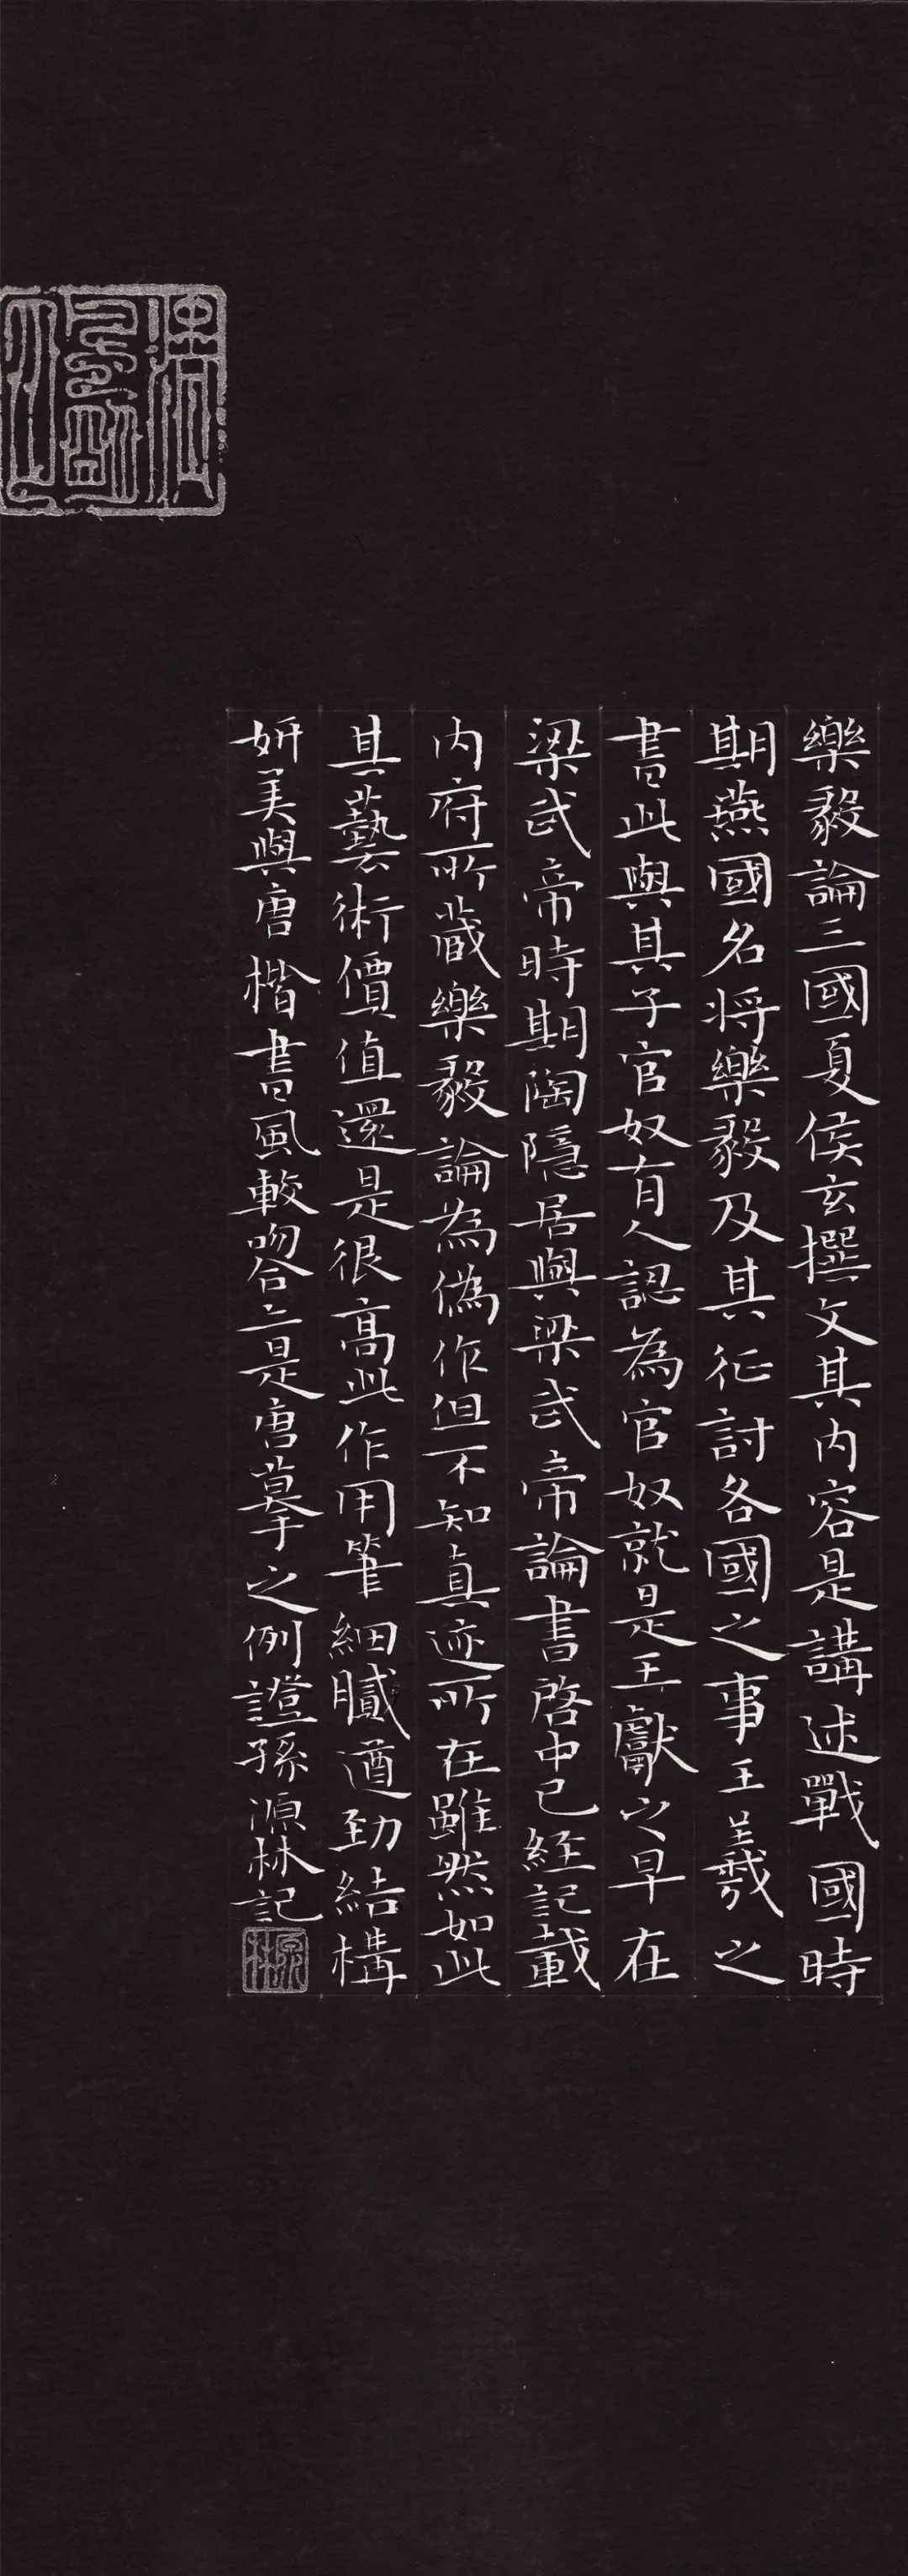 樂毅論三國夏侯玄撰文其内容是講述戰國時
期燕國名将樂毅及其征討各國之事王羲之
書此與其子官奴有人認為官奴就是王獻之早在
梁武帝時期陶隱居與梁武帝論書啓中已經記載
内府所藏樂毅論為偽作但不知真迹所在雖然如此
其藝術價值還是很高此作用筆細膩遒勁結構
妍美與唐楷書風較吻合亦是唐摹之例證孫源林記
源林